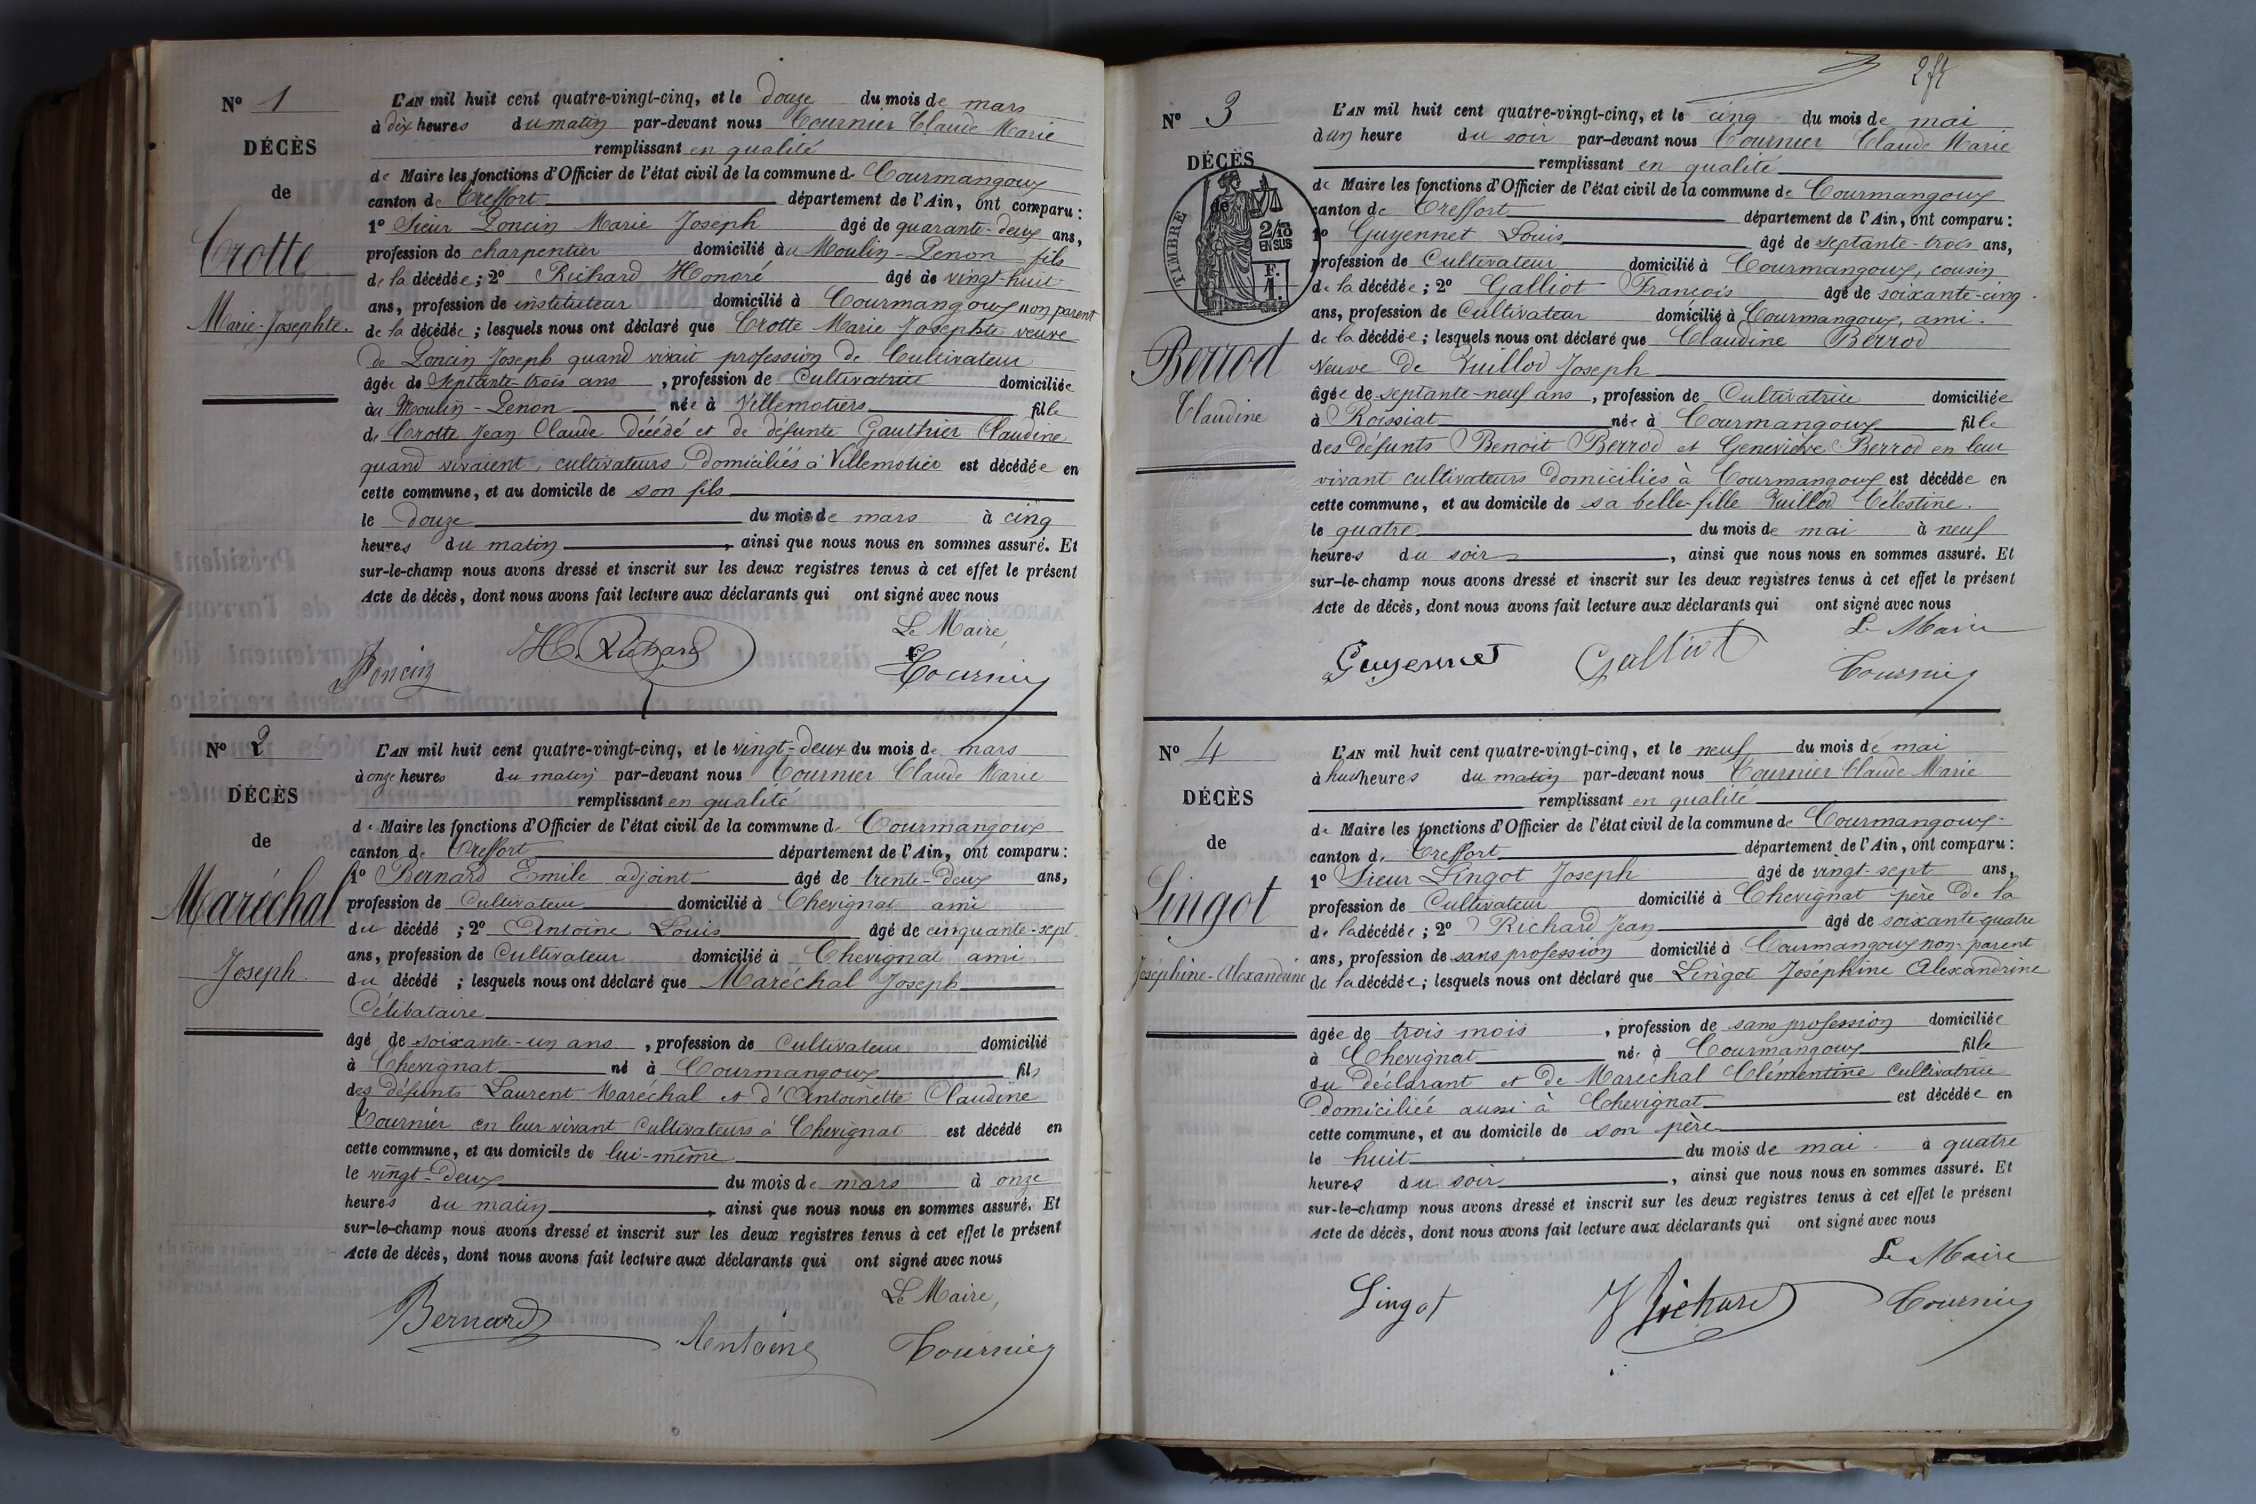 N° 1
DÉCÈS
de
Crotte
Marie-Josephte.
L'AN mil huit cent quatre-vingt-cinq, et le douze du mois de mars
à dix heures du matin par-devant nous Tournier Claude Marie
remplissant en qualité
de Maire les fonctions d'Officier de l'état civil de la commune de Courmangoux
canton de Treffort département de l'Ain, ont comparu :
1° Sieur Poncin Marie Joseph âgé de quarante-deux ans,
profession de charpentier domicilié au Moulin-Penon fils
de la décédée ; 2° Richard Honoré âgé de vingt-huit
ans, profession de instituteur domicilié à Courmangoux non parent
de la décédée ; lesquels nous ont déclaré que Crotte Marie Josephte veuve
de Poncin Joseph quand vivait profession de Cultivateur
âgée de Septante-trois ans, profession de Cultivatrice domiciliée
au Moulin-Penon née à Villemotiers fille
de Crotte Jean Claude décédé et de défunte Gauthier Claudine
quand vivaient, cultivateurs, domiciliés à Villemotier est décédée en
cette commune, et au domicile de son fils
le douze du mois de mars à cinq
heures du matin, ainsi que nous nous en sommes assuré. Et
sur-le-champ nous avons dressé et inscrit sur les deux registres tenus à cet effet le présent
Acte de décès, dont nous avons fait lecture aux déclarants qui ont signé avec nous
Le Maire,
Poncin H. Richard Tournier
N° 2
DÉCÈS
de
Maréchal
Joseph.
L'AN mil huit cent quatre-vingt-cinq, et le vingt-deux du mois de mars
à onze heures du matin par-devant nous Tournier Claude Marie
remplissant en qualité
de Maire les fonctions d'Officier de l'état civil de la commune de Courmangoux
canton de Treffort département de l'Ain, ont comparu :
1° Bernard Emile adjoint âgé de trente-deux ans,
profession de Cultivateur domicilié à Chevignat ami
du décédé ; 2° Antoine Louis âgé de cinquante-sept
ans, profession de Cultivateur domicilié à Chevignat ami
du décédé ; lesquels nous ont déclaré que Maréchal Joseph
Célibataire
âgé de soixante-un ans, profession de Cultivateur domicilié
à Chevignat né à Courmangoux fils
des défunts Laurent Maréchal et d'Antoinette Claudine
Tournier en leur vivant Cultivateurs à Chevignat est décédé en
cette commune, et au domicile de lui-même
le vingt-deux du mois de mars à onze
heures du matin, ainsi que nous nous en sommes assuré. Et
sur-le-champ nous avons dressé et inscrit sur les deux registres tenus à cet effet le présent
Acte de décès, dont nous avons fait lecture aux déclarants qui ont signé avec nous
Le Maire,
Bernard Antoine Tournier
N° 3
DÉCÈS
de
TIMBRE
2/10
EN SUS
F.
Berrod
Claudine
L'AN mil huit cent quatre-vingt-cinq, et le cinq du mois de mai
à un heure du soir par-devant nous Tournier Claude Marie
remplissant en qualité
de Maire les fonctions d'Officier de l'état civil de la commune de Courmangoux
canton de Treffort département de l'Ain, ont comparu :
1° Guyennet Louis âgé de septante-trois ans,
profession de Cultivateur domicilié à Courmangoux, cousin
de la décédée ; 2° Galliot François âgé de soixante-cinq
ans, profession de Cultivateur domicilié à Courmangoux, ami.
de la décédée ; lesquels nous ont déclaré que Claudine Berrod
Veuve de Vuillod Joseph
âgée de septante-neuf ans, profession de Cultivatrice domiciliée
à Roissiat née à Courmangoux fille
des défunts Benoit Berrod et Geneviève Berrod en leur
vivant cultivateurs domiciliés à Courmangoux est décédée en
cette commune, et au domicile de sa belle-fille Vuillod Célestine.
le quatre du mois de mai à neuf
heures du soir, ainsi que nous nous en sommes assuré. Et
sur-le-champ nous avons dressé et inscrit sur les deux registres tenus à cet effet le présent
Acte de décès, dont nous avons fait lecture aux déclarants qui ont signé avec nous
Le Maire
Guyennet Galliot Tournier
N° 4
DÉCÈS
de
Lingot
Joséphine-Alexandrine
L'AN mil huit cent quatre-vingt-cinq, et le neuf du mois de mai
à huit heures du matin par-devant nous Tournier Claude Marie
remplissant en qualité
de Maire les fonctions d'Officier de l'état civil de la commune de Courmangoux
canton de Treffort département de l'Ain, ont comparu :
1° Sieur Lingot Joseph âgé de vingt-sept ans,
profession de Cultivateur domicilié à Chevignat père de la
de la décédée ; 2° Richard Jean âgé de soixante-quatre
ans, profession de sans profession domicilié à Courmangoux non-parent
de la décédée ; lesquels nous ont déclaré que Lingot Joséphine Alexandrine
âgée de trois mois, profession de sans profession domiciliée
à Chevignat née à Courmangoux fille
du déclarant et de Marechal Clémentine Cultivatrice
domiciliée aussi à Chevignat est décédée en
cette commune, et au domicile de son père
le huit du mois de mai à quatre
heures du soir, ainsi que nous nous en sommes assuré. Et
sur-le-champ nous avons dressé et inscrit sur les deux registres tenus à cet effet le présent
Acte de décès, dont nous avons fait lecture aux déclarants qui ont signé avec nous
Le Maire
Lingot Richard Tournier